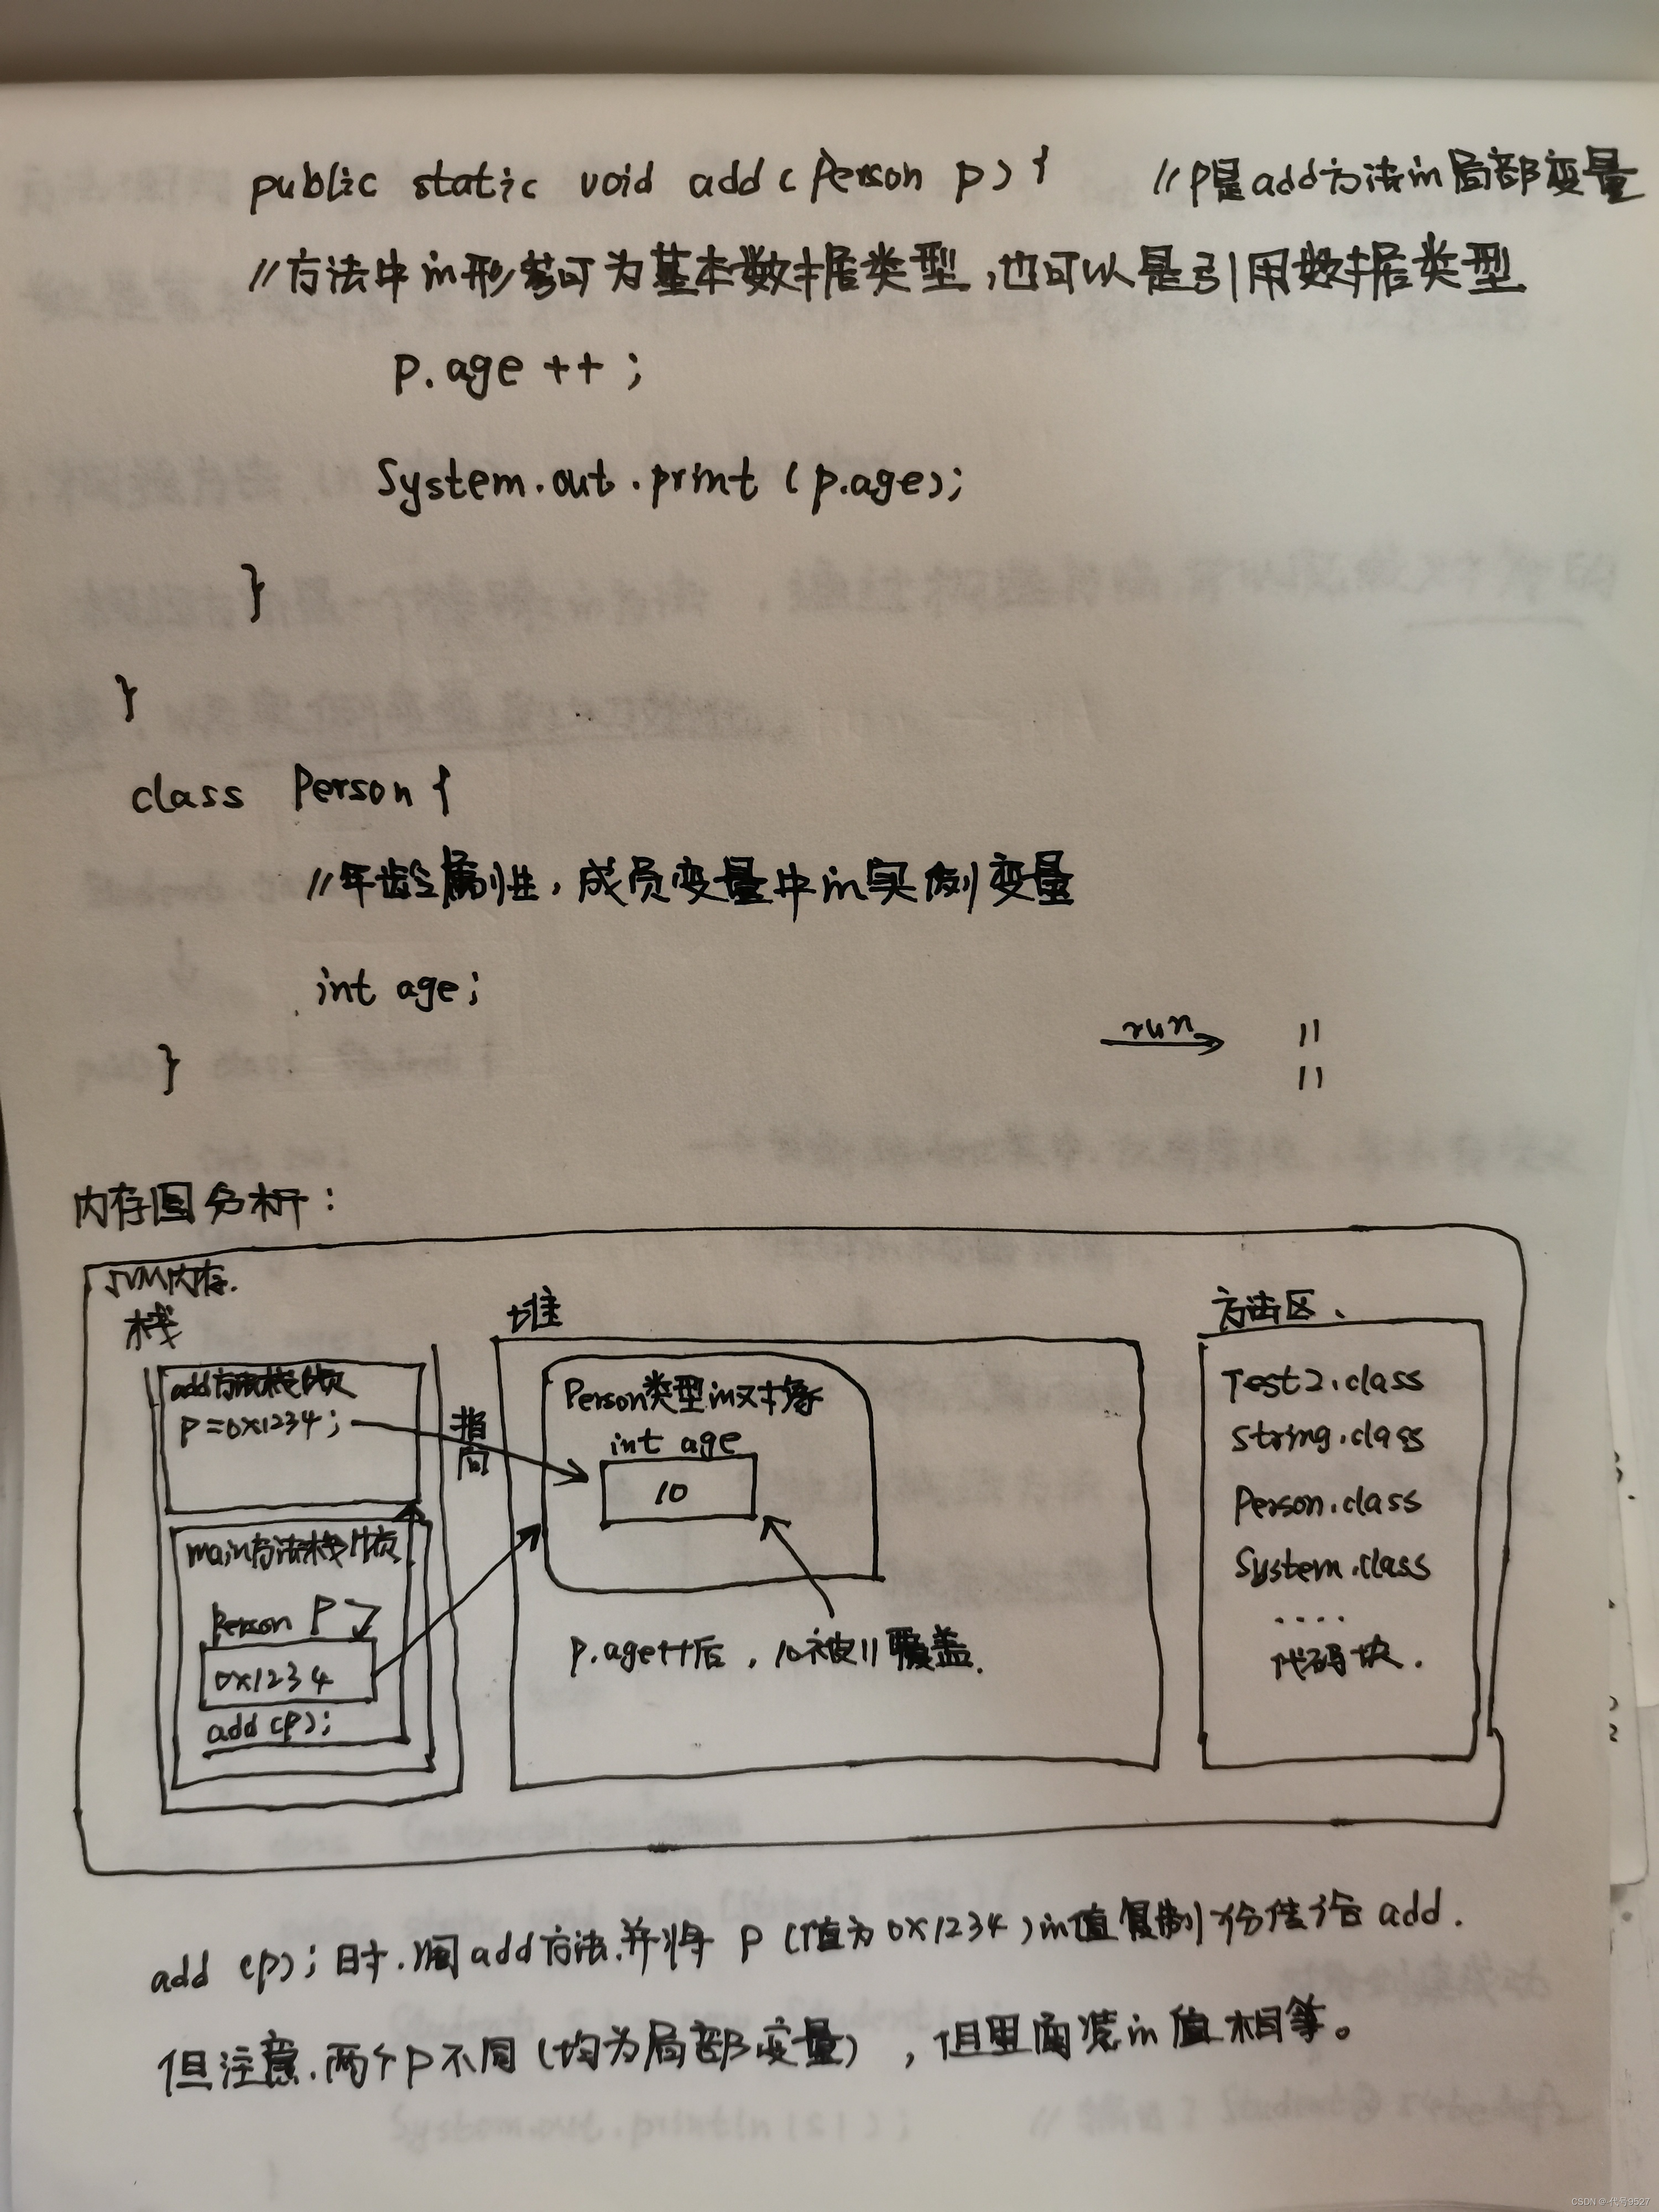 public static void add(Person p){ //p是add方法in局部变量
//方法中in形参可为基本数据类型,也可以是引用数据类型
p.age ++ ;
System.out.print (p.age);
}
}
class Person {
//年龄属性,成员变量中in实例变量
int age;
run 11
11
}
内存图分析:
JVM内存.
栈
堆
方法区、
add方法栈帧
p=0x1234;
指向
Person类型in对象
int age
10
main方法栈帧
Person P
0x1234
add(p);
p.age++后,10被11覆盖.
Test2.class
String.class
Person.class
System.class
....
代码块.
add (p);时.调add方法.并将 p (值为0x1234)in值复制份传给 add.
但注意.两个p不同(均为局部变量),但里面装in值相等。
CSDN @代号9527